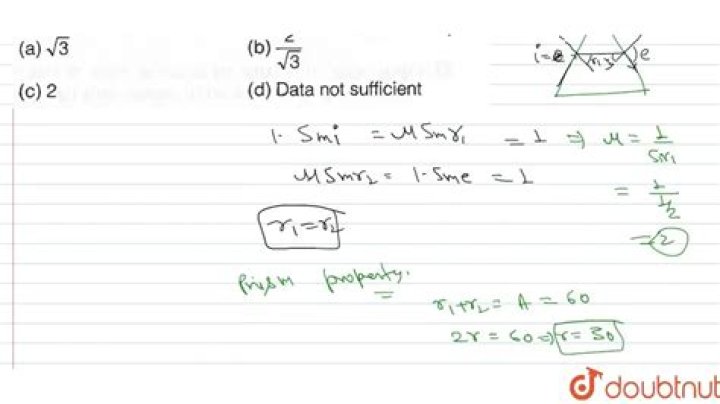 (a) √3
(b) 2/√3
(c) 2
(d) Data not sufficient
i = e
e
1. Sini = μ Sinr₁ = 1 ⇒ μ = 1/Sinr₁
μ Sinr₂ = 1. Sine = 1
= 1/½
r₁ = r₂
= 2
Prism property.
r₁ + r₂ = A = 60
2r = 60 ⇒ r = 30
doubtnut